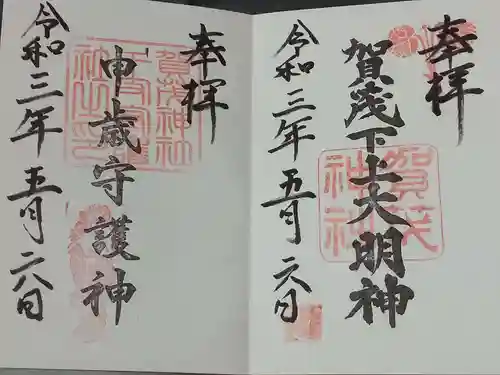 奉拝
賀茂下上大明神
賀茂
神社
令和三年五月六日
奉拝
賀茂神社
申歳守護神
令和三年五月六日